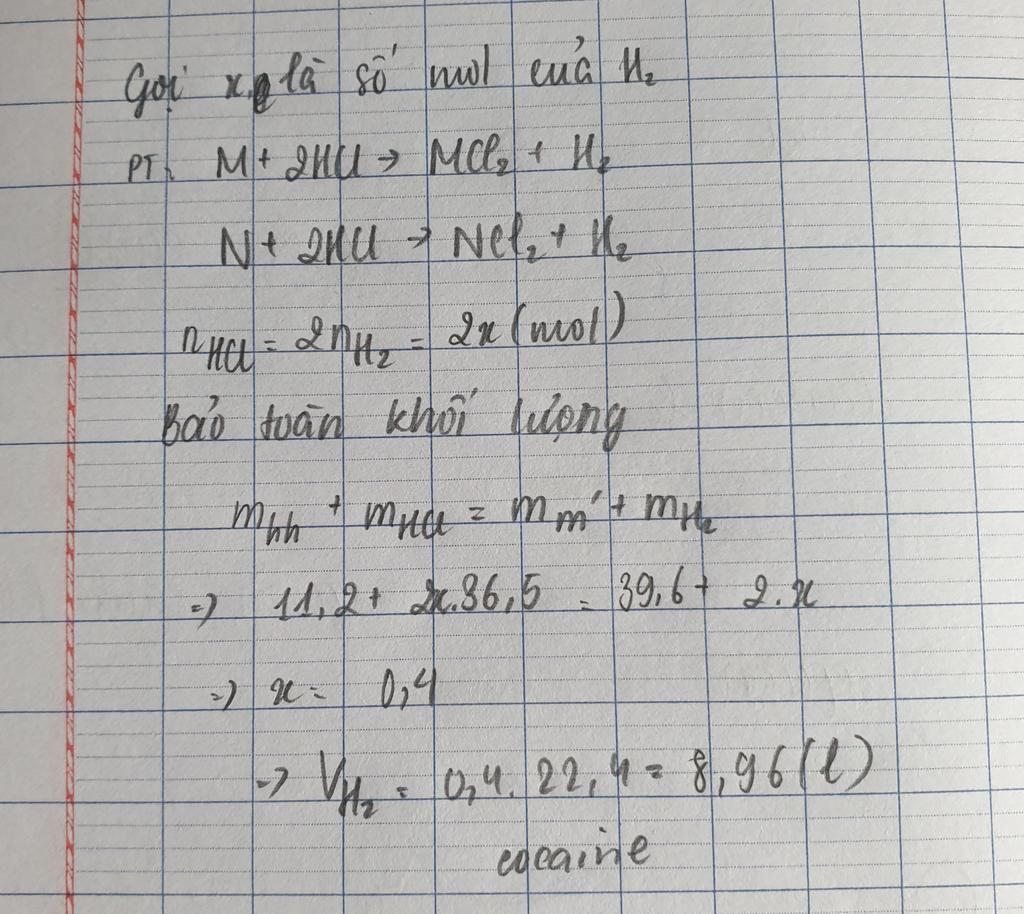 Gọi x là số mol của H₂
PT: M + 2HCl → MCl₂ + H₂
N + 2HCl → NCl₂ + H₂
n_HCl = 2n_H₂ = 2x (mol)
Bảo toàn khối lượng
m_hh + m_HCl = m_m' + m_H₂
=> 11,2 + 2x.36,5 = 39,6 + 2.x
=> x = 0,4
=> V_H₂ = 0,4. 22,4 = 8,96 (l)
cocaine